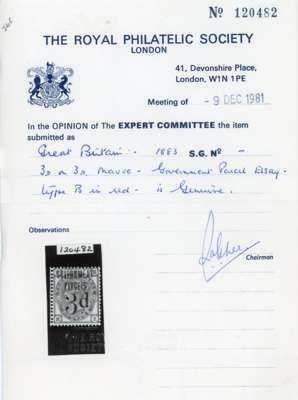 366
Nº 120482
THE ROYAL PHILATELIC SOCIETY
LONDON
41, Devonshire Place,
London, W1N 1PE
Meeting of - 9 DEC 1981
In the OPINION of The EXPERT COMMITTEE the item
submitted as
Great Britain:- 1883 S.G. Nº -
3d on 3d Mauve - Government Parcel Essay -
type B in red - is Genuine.
Observations
Chairman
120482
PARCELS
3d